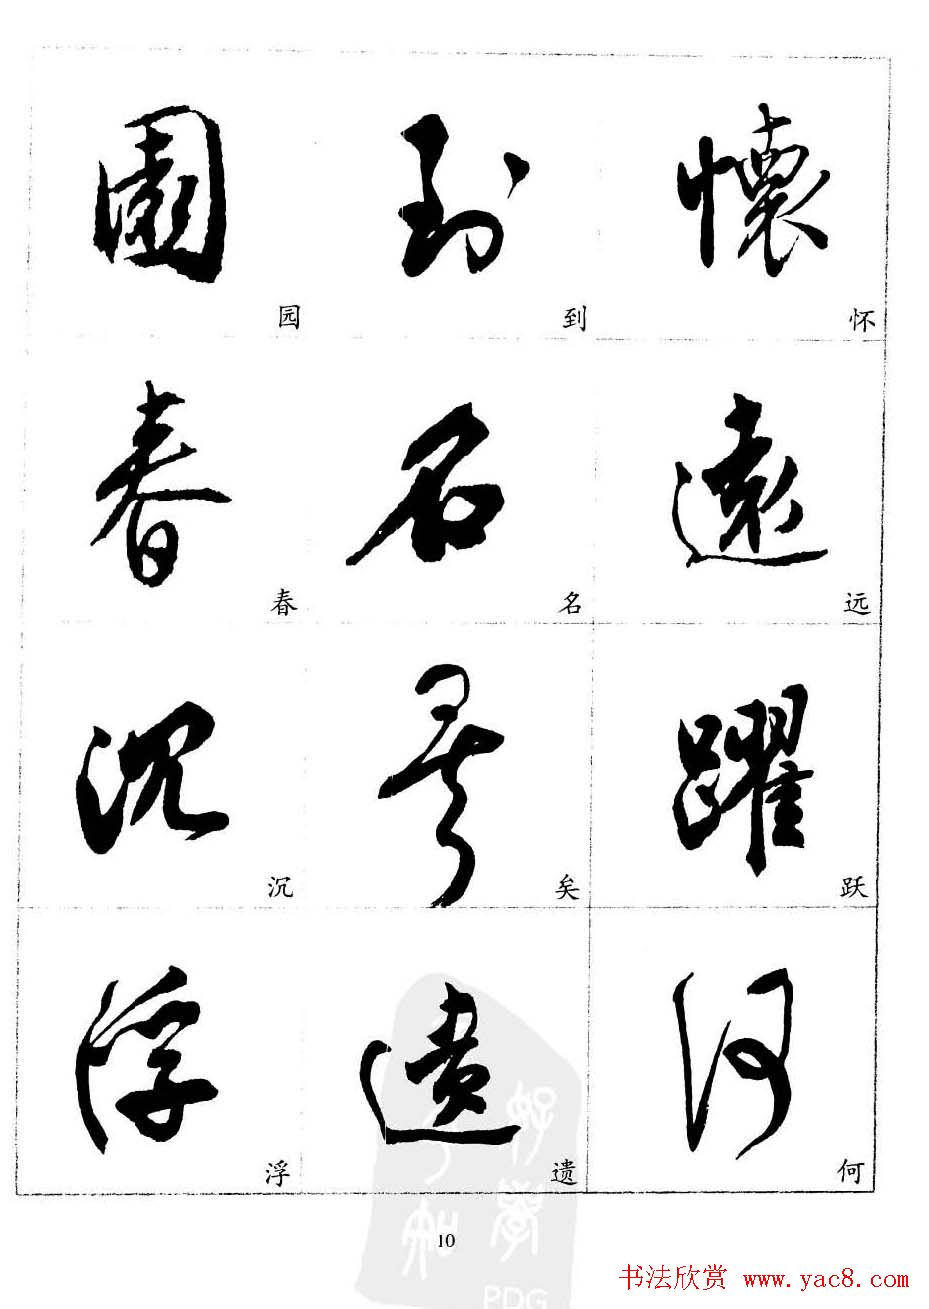 園 到 懷
园 到 怀
春 名 遠
春 名 远
沉 矣 躍
沉 矣 跃
浮 遺 何
浮 遗 何
10
PDG
书法欣赏 www.yac8.com